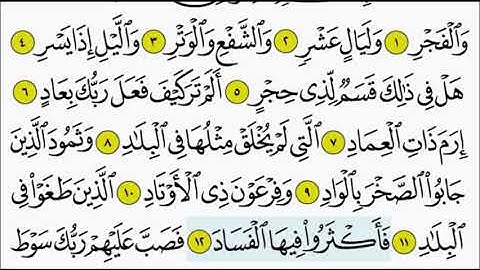 وَالْفَجْرِ ١ وَلَيَالٍ عَشْرٍ ٢ وَالشَّفْعِ وَالْوَتْرِ ٣ وَالَّيْلِ إِذَا يَسْرِ ٤
هَلْ فِي ذَٰلِكَ قَسَمٌ لِّذِي حِجْرٍ ٥ أَلَمْ تَرَ كَيْفَ فَعَلَ رَبُّكَ بِعَادٍ ٦
إِرَمَ ذَاتِ الْعِمَادِ ٧ الَّتِي لَمْ يُخْلَقْ مِثْلُهَا فِي الْبِلَادِ ٨ وَثَمُودَ الَّذِينَ
جَابُوا الصَّخْرَ بِالْوَادِ ٩ وَفِرْعَوْنَ ذِي الْأَوْتَادِ ١٠ الَّذِينَ طَغَوْا فِي
الْبِلَادِ ١١ فَأَكْثَرُوا فِيهَا الْفَسَادَ ١٢ فَصَبَّ عَلَيْهِمْ رَبُّكَ سَوْطَ